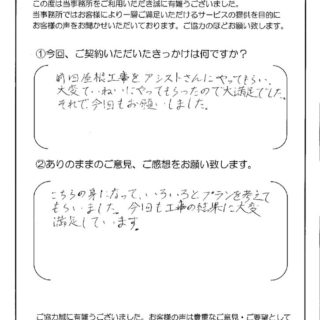 この度は当事務所をご利用いただき誠に有難うございました。
当事務所ではお客様により一層ご満足いただけるサービスの提供を目的に
お客様の声をお聞かせいただいております。ご協力のほどお願い致します。
①今回、ご契約いただいたきっかけは何ですか?
前回屋根工事をアシストさんにやってもらい、
大変ていねいにやってもらったので大満足でした。
それで、今回もお願いしました。
②ありのままのご意見、ご感想をお願い致します。
こちらの身になって、いろいろとプランを考えて
もらいました。今回も工事の結果に大変
満足しています。
ご協力誠に有難うございました。お客様の声は貴重なご意見・ご要望として